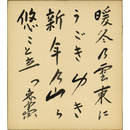 暖冬の雲東に
うごきゆき
新年の山ら
悠々と立つ